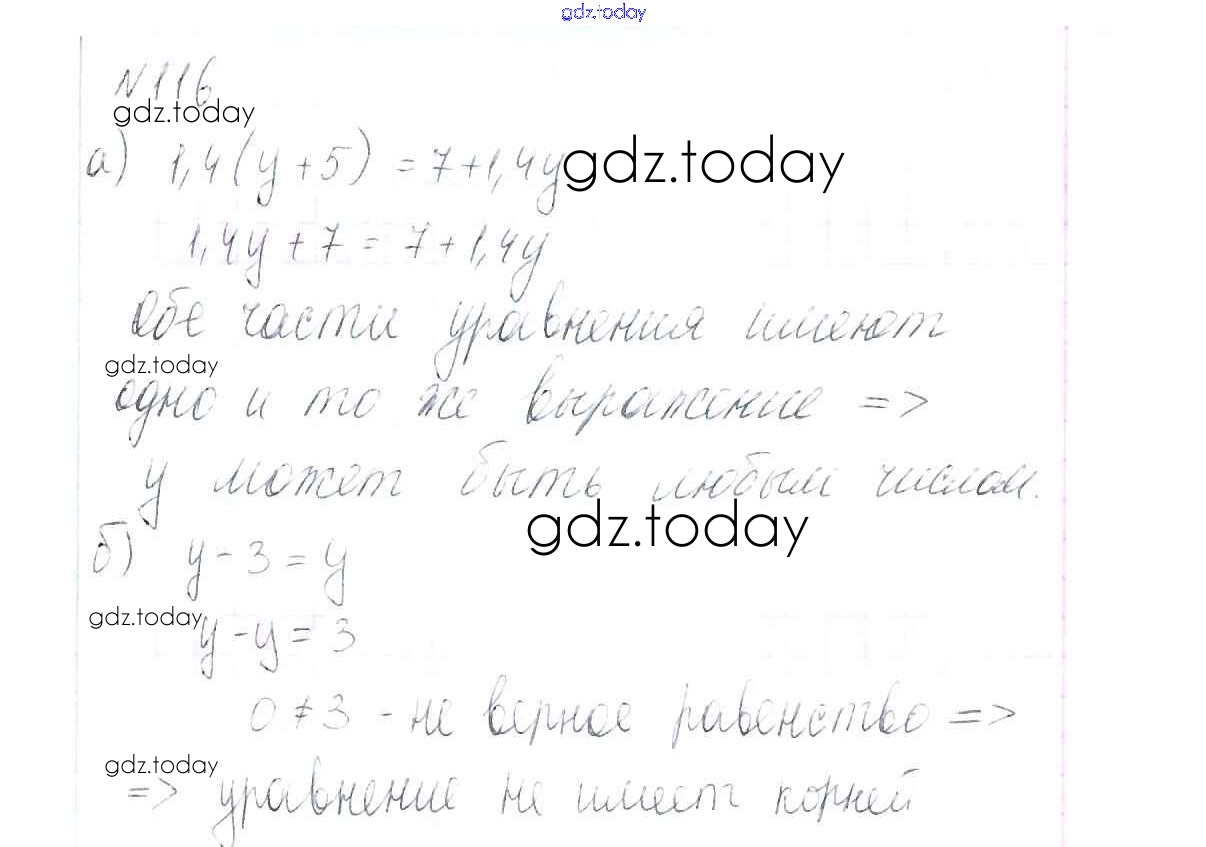 gdz.today
№116
gdz.today
а) 1,4(y+5) = 7+1,4y
gdz.today
1,4y + 7 = 7 + 1,4y
Обе части уравнения имеют
gdz.today
одно и то же выражение =>
y может быть любым числом.
gdz.today
б) y - 3 = y
gdz.today
y - y = 3
0 ≠ 3 - не верное равенство =>
gdz.today
=> уравнение не имеет корней